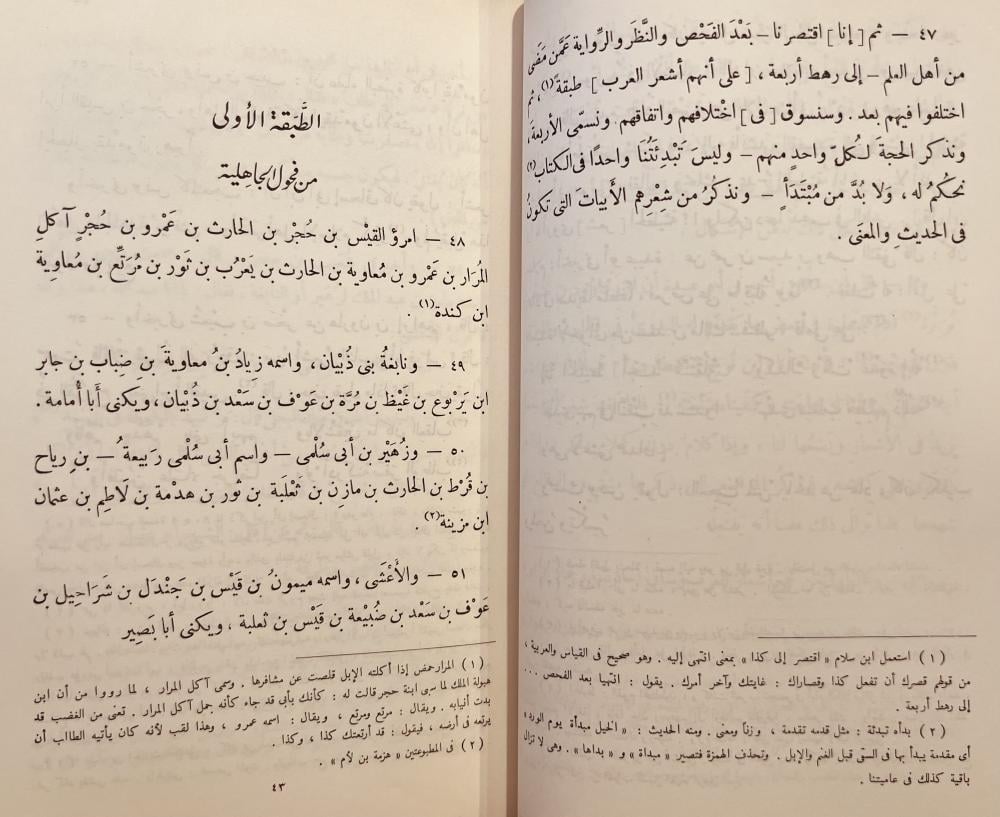 ٤٧ — ثم [ إنا ] اقتصرنا — بَعْدَ الفَحْص والنَّظَر والرِّواية عَمَّن مَضَى
من أهل العلم — إلى رهط أربعة ، [ على أنهم أشعر العرب ] طبقةً(١) ، ثم
اختلفوا فيهم بعد . وسنسوق [ فى ] اخْتلافهم واتفاقهم ونسمّى الأربعةَ ،
ونذكر الحجة لـكلّ واحدٍ منهم — وليسَ تَبْدِئَتُنَا واحدًا فى الكتاب(٢)
نحكُمُ له ، وَلا بُدَّ من مُبْتَدَأٍ — ونذكرُ من شعْرِهم الأبياتَ التى تكونُ
فى الحديث والمعنَى .
( ١ ) استعمل ابن سلام « اقتصر إلى كذا » بمعنى انتهى إليه . وهو صحيح فى القياس والعربية ،
من قولهم قصرك أن تفعل كذا وقصاراك : غايتك وآخر أمرك . يقول : انتهيا بعد الفحص . . .
إلى رهط أربعة .
( ٢ ) بدأه تبدئة : مثل قدمه تقدمة ، وزناً ومعنى . ومنه الحديث : « الخيل مبدأة يوم الورد »
أى مقدمة يبدأ بها فى السقى قبل الغنم والإبل . وتحذف الهمزة فتصير « مبداة » و « بداها » . وهى لا تزال
باقية كذلك فى عاميتنا .
الطَّبَقة الأولى
من فحول الجاهلية
٤٨ — امرؤ القيْس بن حُجْر بن الحارث بن عَمْرو بن حُجْرٍ آكلِ
المُرَار بن عَمْرو بن معاوية بن الحارث بن يَعْرُب بن ثَوْر بن مُرَتِّع بن مُعاوية
ابن كندة(١) .
٤٩ — ونابغةُ بنى ذُبْيان ، واسمه زِيادُ بنُ معاويةَ بنِ ضِباب بنِ جابر
ابن يَرْبوع بن غَيْظ بن مُرَّة بن عَوْف بن سَعْد بن ذُبْيان ، ويكنى أَبا أُمامة .
٥٠ — وزُهَيْر بن أبى سُلْمى — واسم أبى سُلْمى رَبيعةُ — بن رِياح
بن قُرْط بن الحارث بن مازن بن ثَعْلبة بن ثور بن هدْمة بن لَاطِم بن عثمان
ابن مزينة(٢) .
٥١ — والأَعْشَى ، واسمه ميمونُ بن قَيْس بن جَنْدَل بن شَرَاحِيل بن
عَوْف بن سَعْد بن ضُبَيْعة بن قَيْس بن ثعلبة ، ويكنى أبا بَصِير
( ١ ) المرار حمض إذا أكلته الإبل قلصت عن مشافرها . وسمى آكل المرار ، لما رووا من أن ابن
هبولة الملك لما سبى ابنة حجر قالت له : كأنك بأبى قد جاء كأنه جمل آكل المرار . تعنى من الغضب قد
بدت أنيابه . ويقال : مرتع ومرتع ، ويقال : اسمه عمرو ، وهذا لقب لأنه كان يأتيه الطالب أن
يرتعه فى أرضه ، فيقول : قد أرتعتك كذا ، وكذا .
( ٢ ) فى المطبوعتين « هزمة بن لأم » .
٤٣